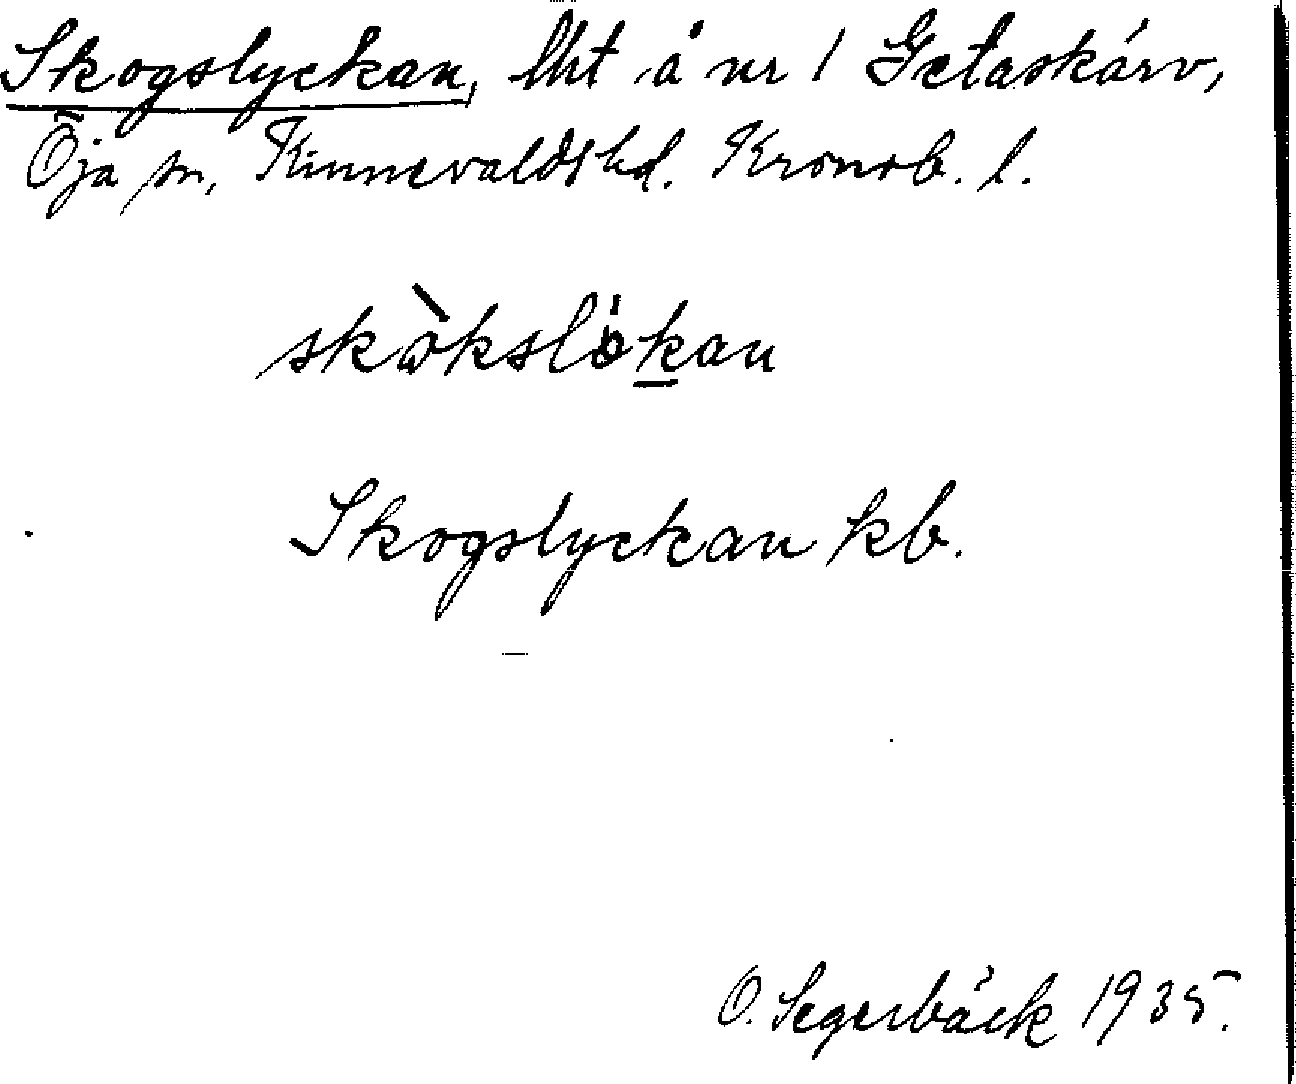 Skogslyckan, lht å nr 1 Getaskärv,
Öja sn, Kinnevalds hd. Kronob. l.
skòkslö́kan
Skogslyckan kb.
O. Segerbäck 1935.